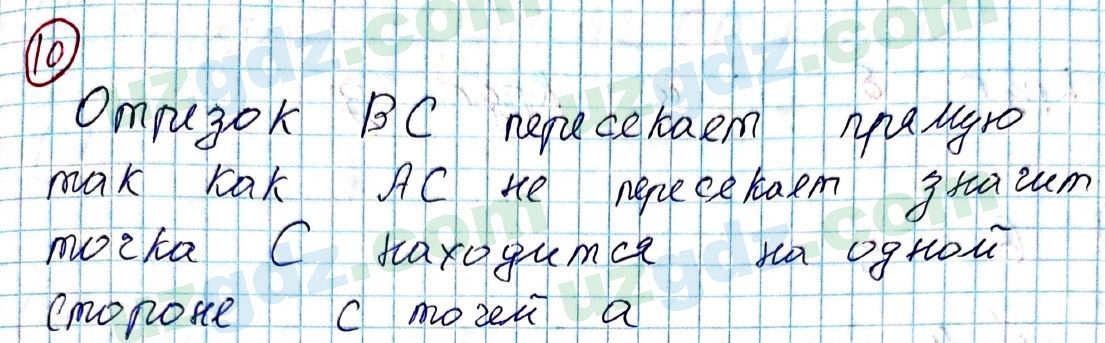 10
Отрезок ВС пересекает прямую
так как АС не пересекает значит
точка С находится на одной
стороне с точей а